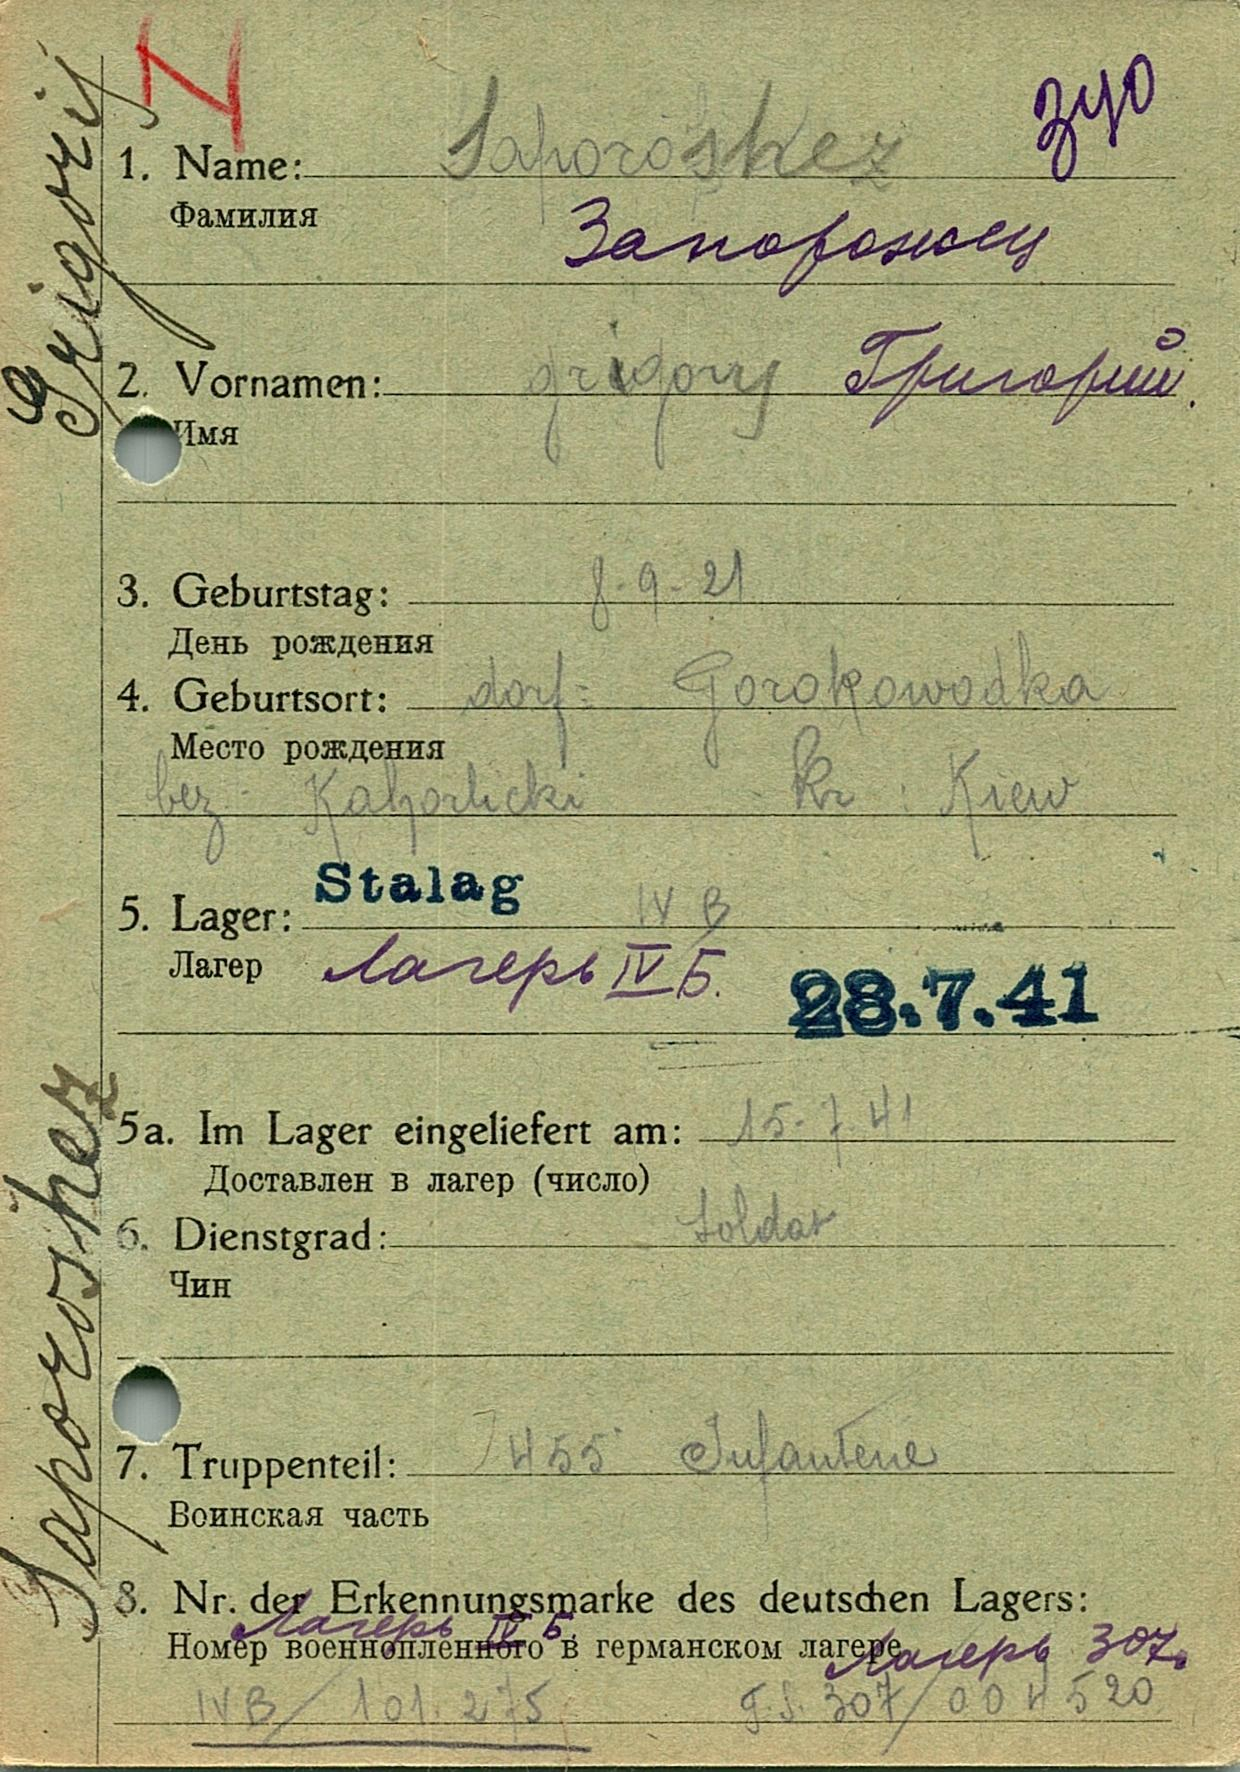 зуо
1. Name: Saporoshez
Фамилия
Запорожец
2. Vornamen: grigory Григорий.
Имя
3. Geburtstag: 8-9-21
День рождения
4. Geburtsort: dorf: Gorokowodka
Место рождения
bez. Kahorlicki kr: Kiew
Stalag
5. Lager: IV B
Лагер
Лагерь IV Б.
28.7.41
5a. Im Lager eingeliefert am: 15-7.41
Доставлен в лагер (число)
6. Dienstgrad: Soldat
Чин
7. Truppenteil: 455 Infanterie
Воинская часть
8. Nr. der Erkennungsmarke des deutschen Lagers:
Лагерь IV Б.
Номер военнопленного в германском лагере
Лагерь 307.
IVB/101.275 F.S. 307/004520
Saporoshez Grigorij